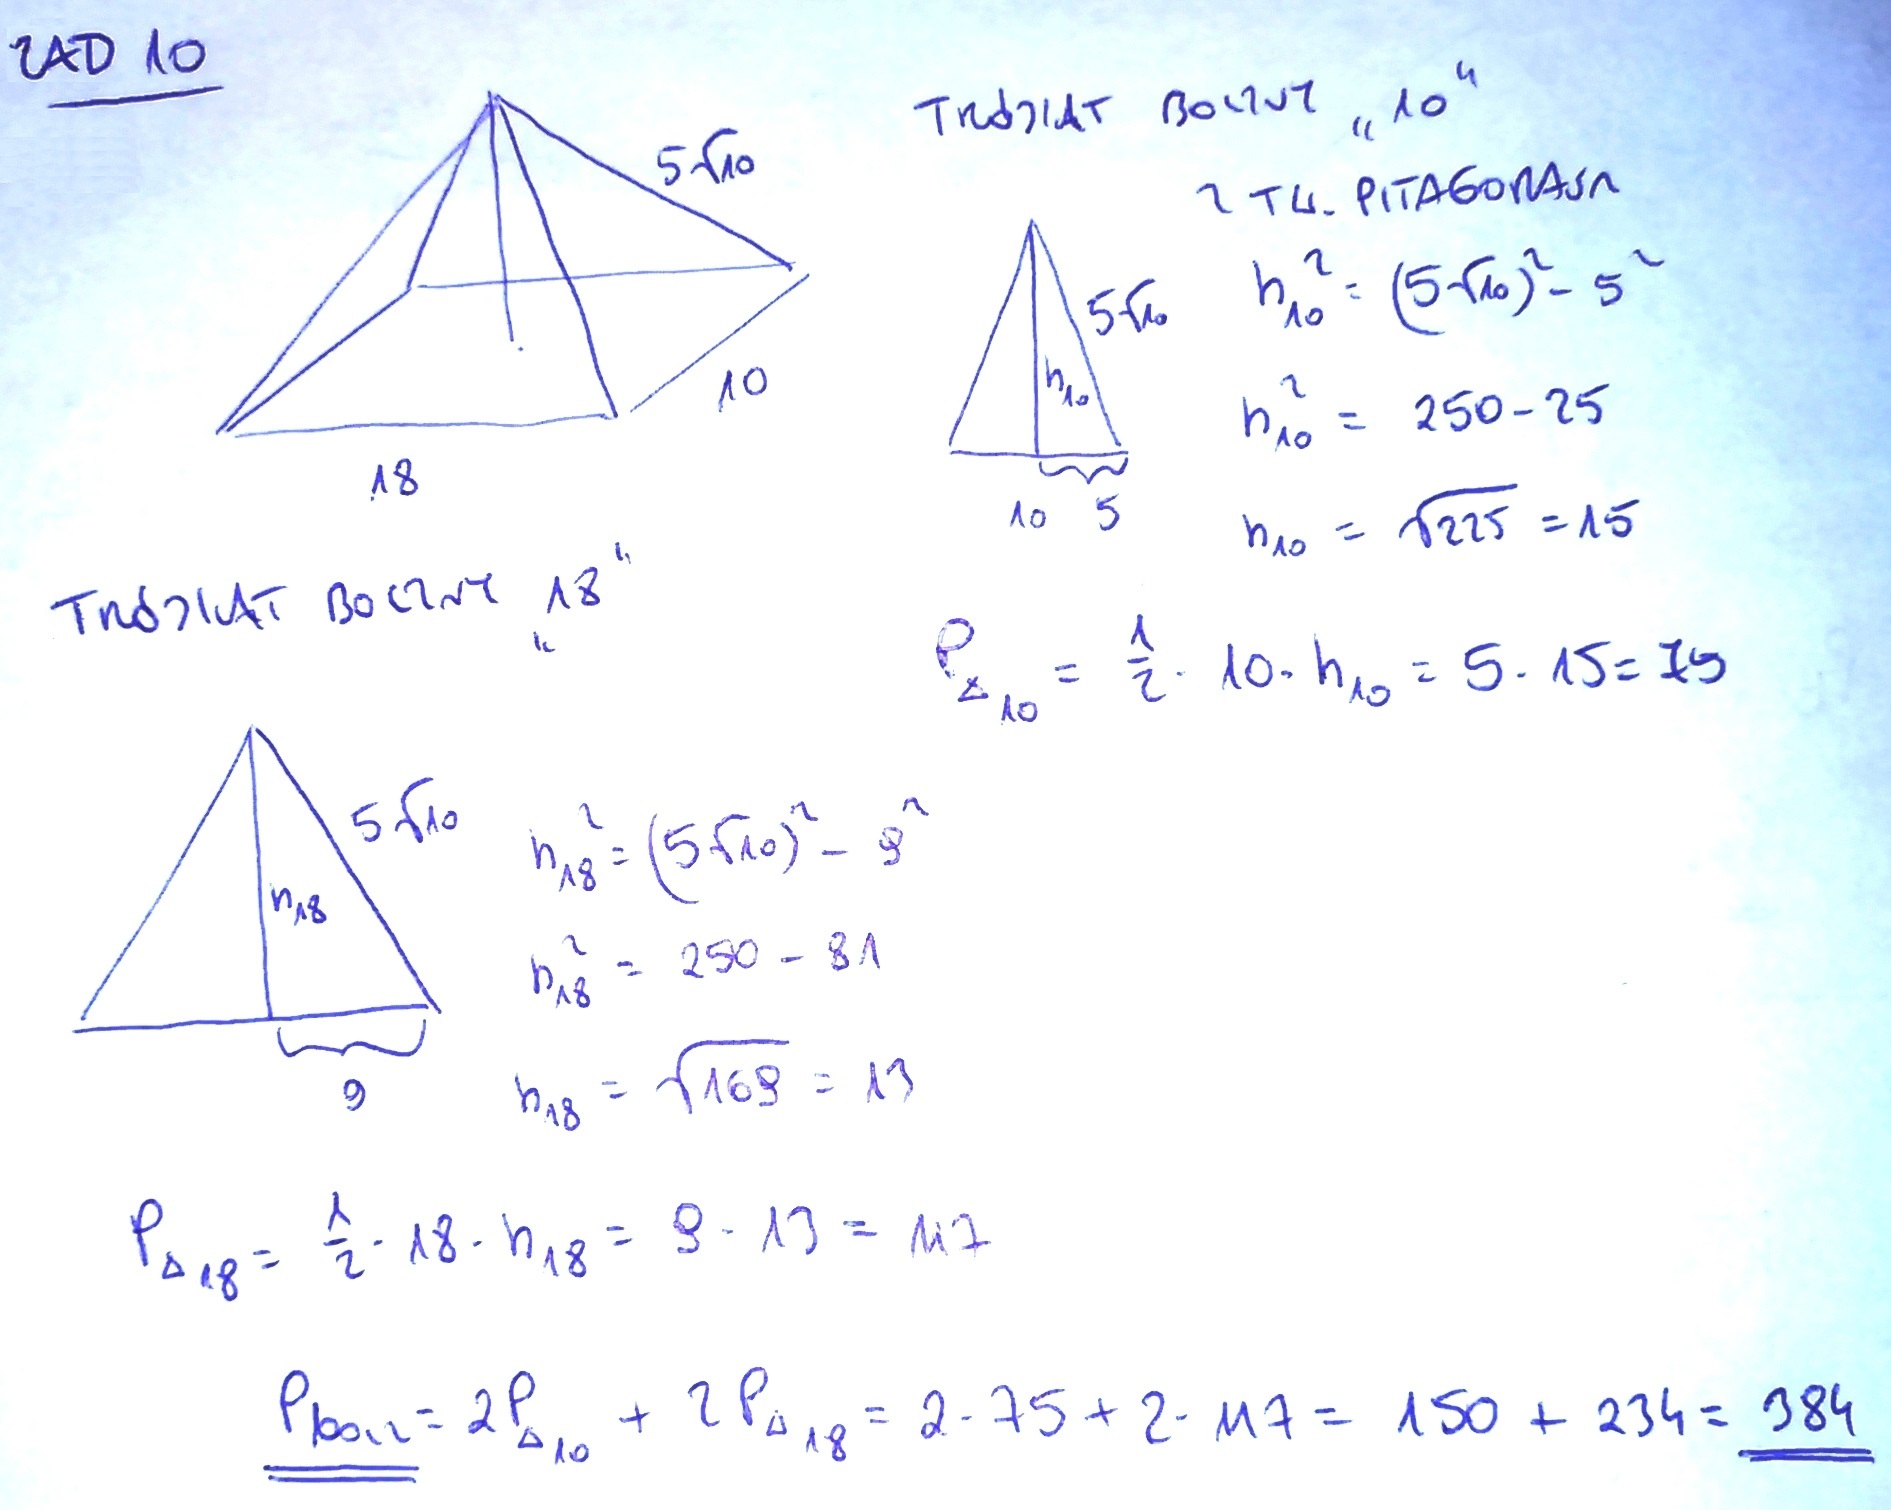 ZAD 10
5√10
10
18
TRÓJKĄT BOCZNY „10"
Z TW. PITAGORASA
5√10
h₁₀
10 5
h₁₀² = (5√10)² - 5²
h₁₀² = 250 - 25
h₁₀ = √225 = 15
P△₁₀ = 1/2 · 10 · h₁₀ = 5 · 15 = 75
TRÓJKĄT BOCZNY „18"
5√10
h₁₈
9
h₁₈² = (5√10)² - 9²
h₁₈² = 250 - 81
h₁₈ = √169 = 13
P△₁₈ = 1/2 · 18 · h₁₈ = 9 · 13 = 117
Pbocz = 2P△₁₀ + 2P△₁₈ = 2 · 75 + 2 · 117 = 150 + 234 = 384